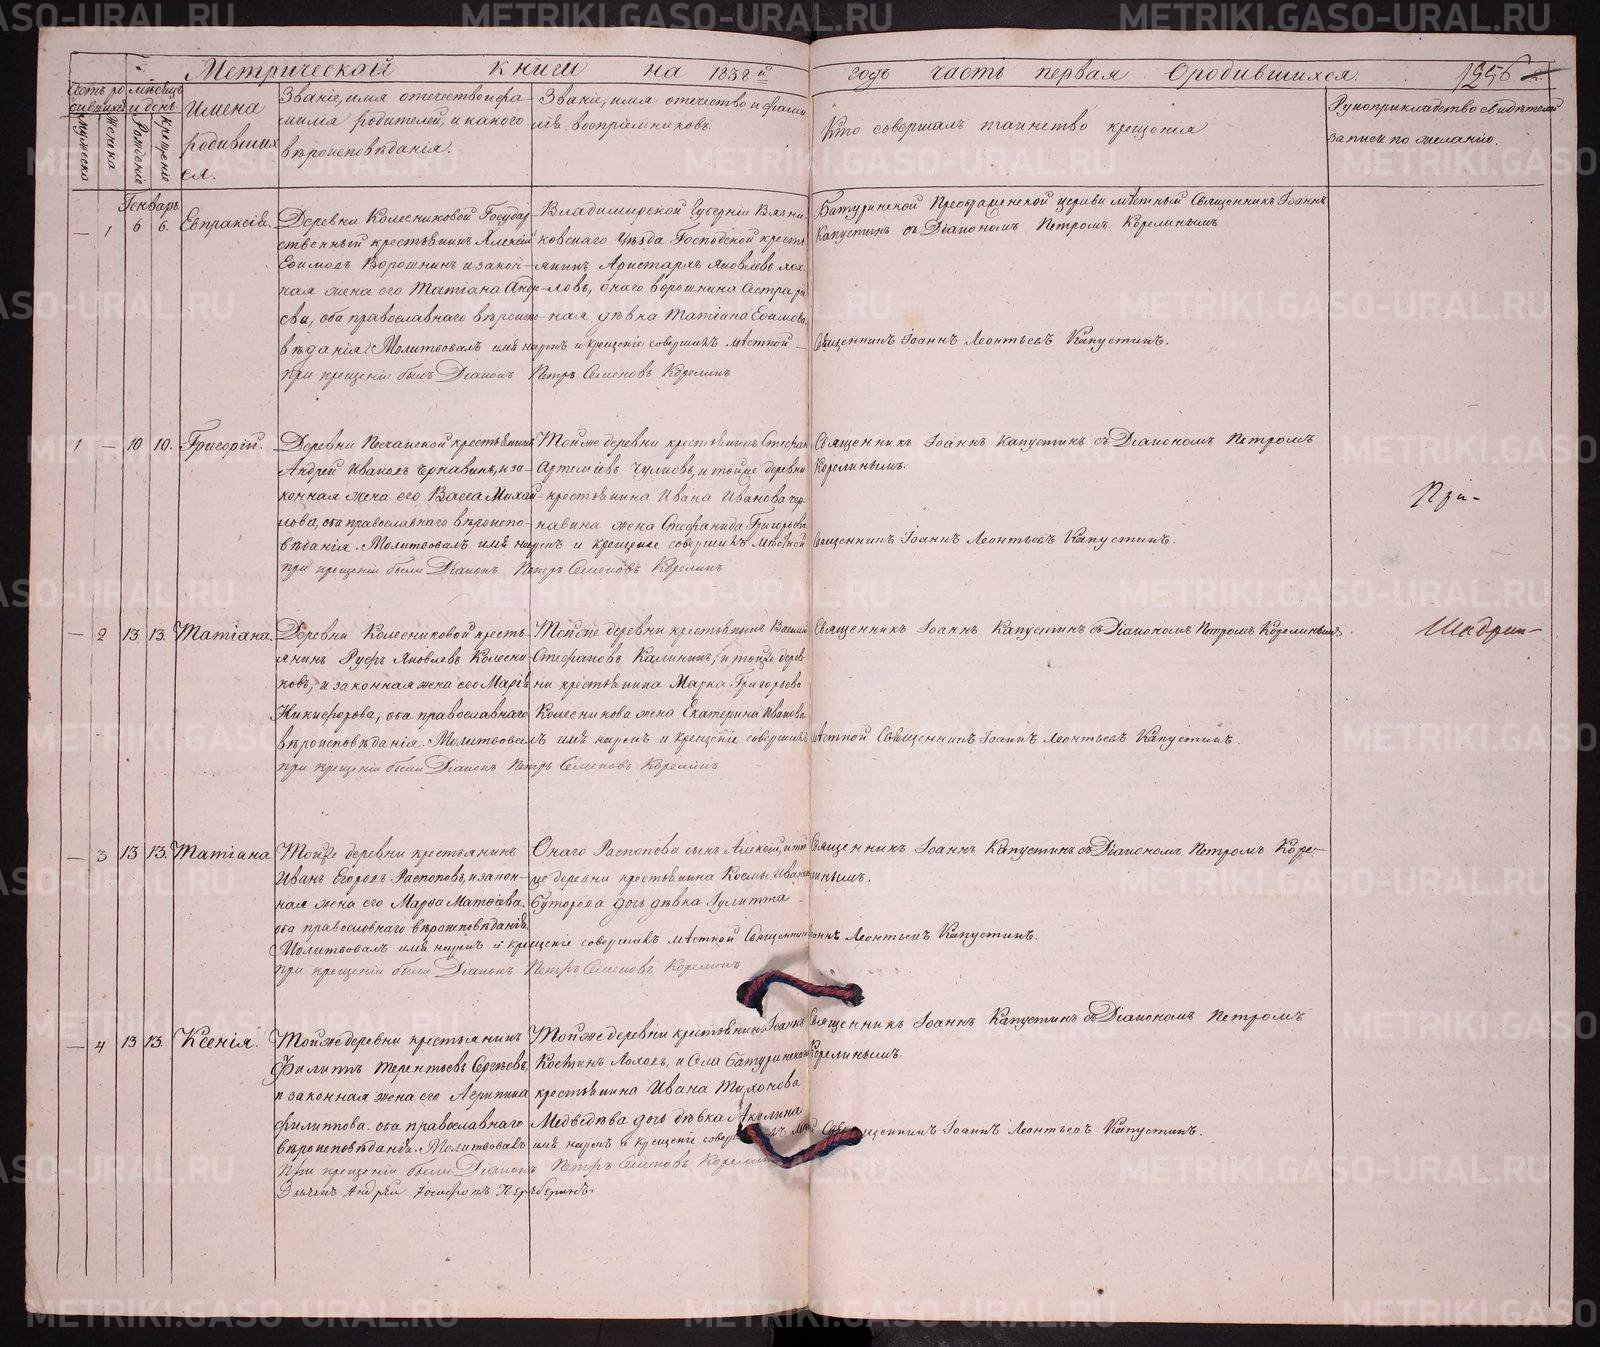 Метрической книги на 1838й годъ часть первая о родившихся. 1256
Счетъ родившихся
Мѣсяцъ и день
Мужеска
Женска
Рожденіе
Крещеніе
Имена родившихся.
Званіе, имя отечество и фамилія родителей, и какого вѣроисповѣданія.
Званіе, имя отечество и фамилія воспріемниковъ.
Кто совершалъ таинство крещенія
Рукоприкладство свидѣтелей записи по желанію.
Генварь
— 1 6 6. Евпраксія.
Деревни Колесниковой Государ-
ственный крестьянинъ Алексѣй
Ефимовъ Ворошнинъ и закон-
ная жена его Татіана Андр-
ева, оба православнаго вѣроиспо-
вѣданія. Молитвовалъ имя нарекъ и крещеніе совершилъ мѣстной Священникъ Іоаннъ Леонтьевъ Капустинъ.
при крещеніи былъ Діаконъ Петръ Семеновъ Корелинъ
Владимирской Губерніи Вязни-
ковскаго Уѣзда Господской кресть-
янинъ Аристархъ Яковлевъ
онаго Ворошнина Сестра род-
ная дѣвка Татіана Ефимова.
Батуринской Преображенской церкви мѣстный Священникъ Іоаннъ
Капустинъ съ Діакономъ Петромъ Корелинымъ
1 — 10 10. Григорій.
Деревни крестьянинъ
Андрей Ивановъ Чернавинъ, и за-
конная жена его Васса Михай-
лова, оба православнаго вѣроиспо-
вѣданія. Молитвовалъ имя нарекъ и крещеніе совершилъ мѣстной Священникъ Іоаннъ Леонтьевъ Капустинъ.
при крещеніи были Діаконъ Петръ Семеновъ Корелинъ
Той же деревни крестьянинъ Стефанъ
Артеміевъ Чулковъ, и тойже деревни
крестьянина Ивана Иванова Чер-
навина жена Стефанида Григорьева
Священникъ Іоаннъ Капустинъ съ Діакономъ Петромъ
Корелинымъ.
При-
— 2 13 13. Татіана.
Деревни Колесниковой кресть-
янинъ Руфъ Яковлевъ Колесни-
ковъ, и законная жена его Марія
Никифорова, оба православнаго
вѣроисповѣданія. Молитвовалъ имя нарекъ и крещеніе совершилъ мѣстной Священникъ Іоаннъ Леонтьевъ Капустинъ.
при крещеніи были Діаконъ Петръ Семеновъ Корелинъ
Тойже деревни крестьянинъ Василій
Стефановъ Калининъ, и тойже дерев-
ни крестьянина Марка Григорьева
Колесникова жена Екатерина Иванова.
Священникъ Іоаннъ Капустинъ съ Діакономъ Петромъ Корелинымъ.
Шадрин-
— 3 13 13. Татіана
Тойже деревни крестьянинъ
Иванъ Егоровъ Распоповъ, и закон-
ная жена его Марфа Матфіева.
оба православнаго вѣроисповѣданія.
Молитвовалъ имя нарекъ и крещеніе совершилъ мѣстной Священникъ Іоаннъ Леонтьевъ Капустинъ.
при крещеніи были Діаконъ Петръ Семеновъ Корелинъ
Онаго Распопова сынъ Алексій, и той
же деревни крестьянина Космы Иванова
Суторова дочь дѣвка Іулитта
Священникъ Іоаннъ Капустинъ съ Діакономъ Петромъ Коре-
линымъ.
— 4 13 13. Ксенія.
Тойже деревни крестьянинъ
Филиппъ Терентьевъ Сергѣевъ,
и законная жена его Агрипина
Филиппова. оба православнаго
вѣроисповѣданія. Молитвовалъ имя нарекъ и крещеніе совершилъ Священникъ Іоаннъ Леонтьевъ Капустинъ.
При крещеніи были Діаконъ Петръ Семеновъ Корелинъ
Дьячекъ Андрей
Тойже деревни крестьянинъ Іоаннъ
Костинъ Лоховъ, и Села Батуринскаго
крестьянина Ивана Тихонова
Медведева дочь дѣвка Акилина
Священникъ Іоаннъ Капустинъ съ Діакономъ Петромъ
Корелинымъ.
METRIKI.GASO-URAL.RU